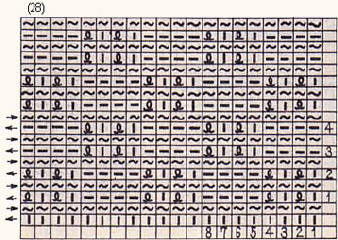 (28)
4
3
2
1
8 7 6 5 4 3 2 1